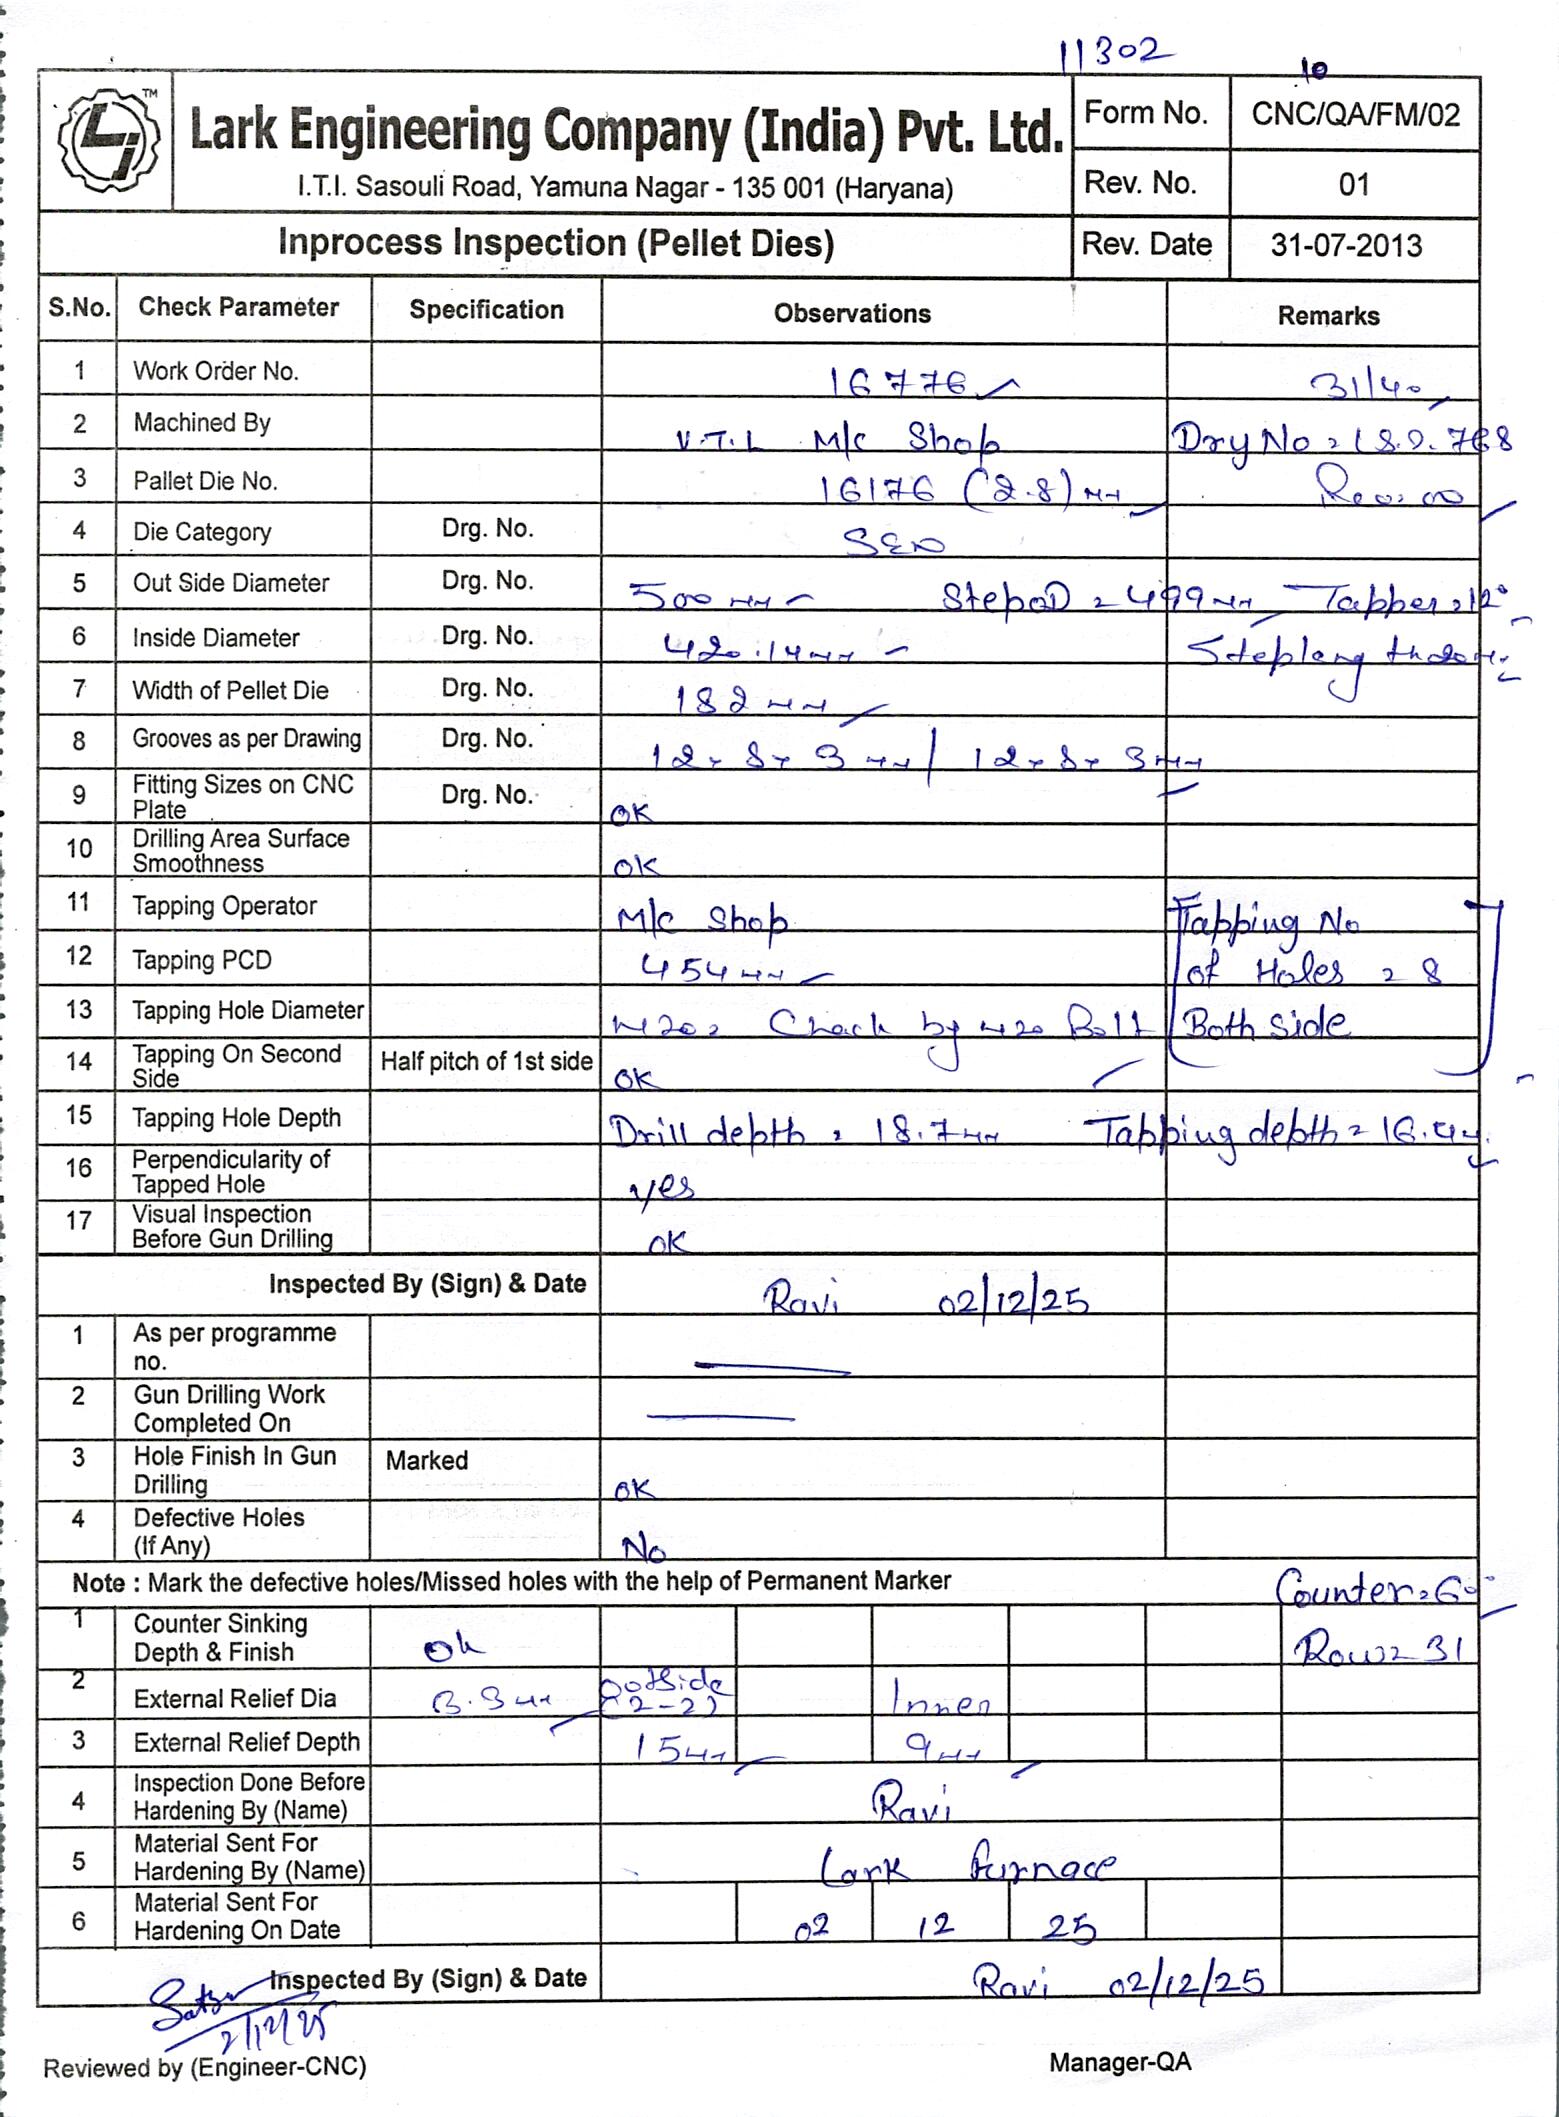 11302
10
TM
Lark Engineering Company (India) Pvt. Ltd.
I.T.I. Sasouli Road, Yamuna Nagar - 135 001 (Haryana)
Form No. CNC/QA/FM/02
Rev. No. 01
Inprocess Inspection (Pellet Dies) Rev. Date 31-07-2013
S.No. Check Parameter Specification Observations Remarks
1 Work Order No. 16776 31/40
2 Machined By V.T.L M/c Shop Dry No = 768
3 Pallet Die No. 16176 (2.8) mm Rev: 00
4 Die Category Drg. No.
5 Out Side Diameter Drg. No. 500 mm Step OD = 499 mm Tapper = 12°
6 Inside Diameter Drg. No. 420.14 mm Step length
7 Width of Pellet Die Drg. No. 182 mm
8 Grooves as per Drawing Drg. No. 12 x 8 x 3 mm / 12 x 8 x 3 mm
9 Fitting Sizes on CNC Plate Drg. No. OK
10 Drilling Area Surface Smoothness OK
11 Tapping Operator M/c Shop Tapping No
12 Tapping PCD 454 mm of Holes = 8
13 Tapping Hole Diameter M20 = Chack by M20 Bolt Both Side
14 Tapping On Second Side Half pitch of 1st side OK
15 Tapping Hole Depth Drill depth = 18.7 mm Tapping depth =
16 Perpendicularity of Tapped Hole yes
17 Visual Inspection Before Gun Drilling OK
Inspected By (Sign) & Date Ravi 02/12/25
1 As per programme no.
2 Gun Drilling Work Completed On
3 Hole Finish In Gun Drilling Marked OK
4 Defective Holes (If Any) No
Note : Mark the defective holes/Missed holes with the help of Permanent Marker Counter = 60°
1 Counter Sinking Depth & Finish Ok Row = 31
2 External Relief Dia 3.3 mm Outside (2-2) Inner
3 External Relief Depth 15 mm 9 mm
4 Inspection Done Before Hardening By (Name) Ravi
5 Material Sent For Hardening By (Name) Lark furnace
6 Material Sent For Hardening On Date 02 12 25
Inspected By (Sign) & Date Ravi 02/12/25
2/12/25
Reviewed by (Engineer-CNC) Manager-QA